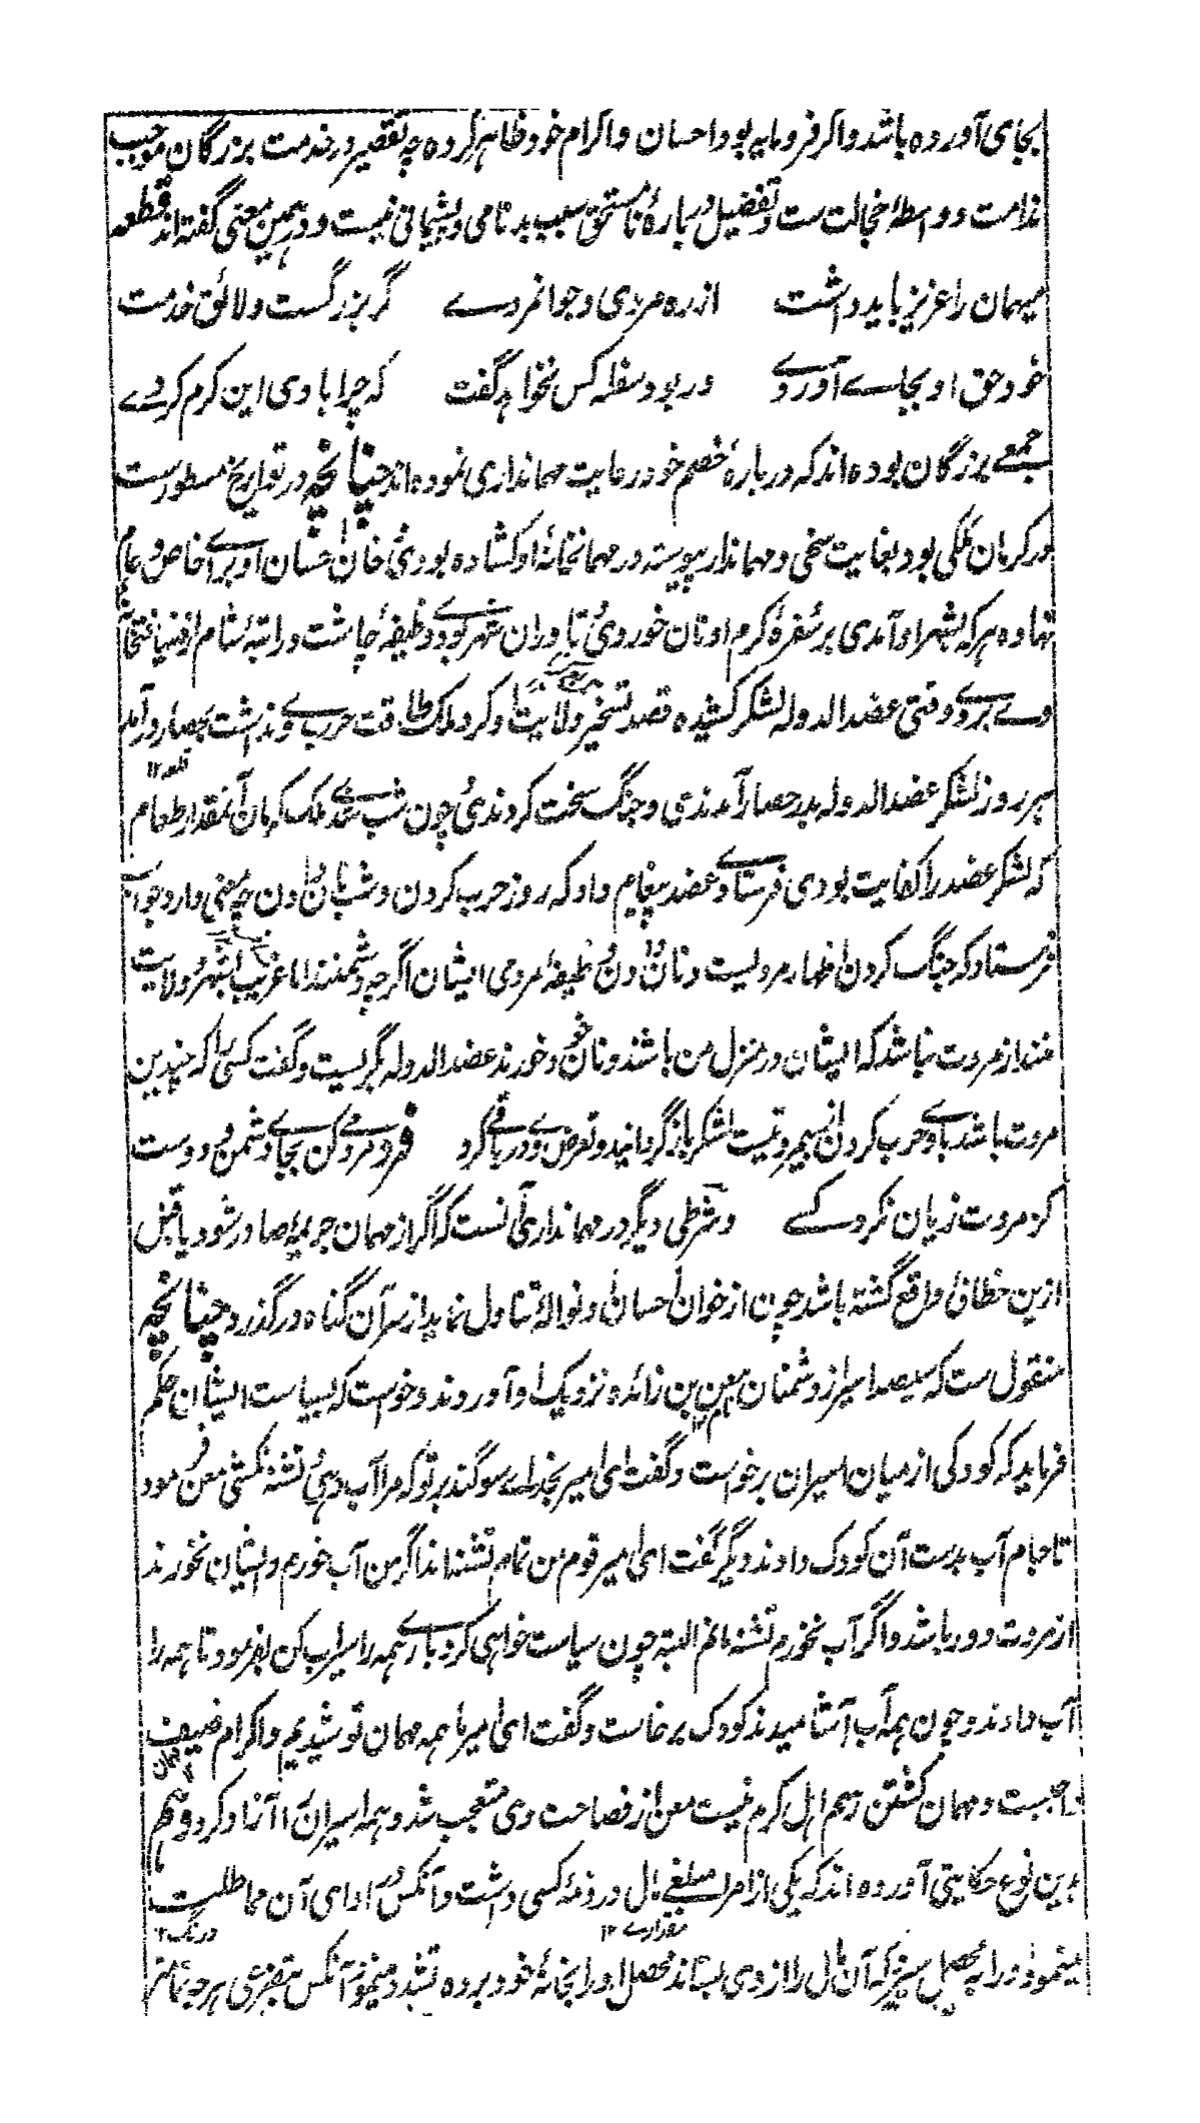 بجای آورده باشد و اگر فرومایه بود احسان و اکرام خود ظاهر کرده چه تقصیر در خدمت بزرگان موجب
ندامت و واسطهٔ خجالت ست و تفضیل دربارهٔ نامستحق سبب بدنامی و پشیمانی نیست و در همین معنی گفته اند قطعه
میهمان را عزیز باید داشت از ره مردی و جوانمردے گر بزرگست و لائق خدمت
خود حق او بجاے آوردے ور بود سفله کس نخواهد گفت که چرا با وی این کرم کردے
جمعے بزرگان بوده اند که دربارهٔ خصم خود رعایت مهمانداری نموده اند چنانچه در تواریخ مسطورست
در کرمان ملکی بود بغایت سخی و مهماندار پیوسته در مهمانخانهٔ او کشاده بودی و خان احسان او براے خاص و عام
نهاده هر که بشهر او آمدی بر سفرهٔ کرم او نان خوردی و تا در ان شهر بودے وظیفهٔ چاشت و راتبهٔ شام از ضیافتخانهٔ
وے بردے وقتی عضدالدوله لشکر کشیده قصد تسخیر ولایت او کرد ملک طاقت حربے نداشت بحصار در آمد
قلعه ۱۲
هر روز لشکر عضدالدوله بدر حصار آمدندی و جنگ سخت کردندی و چون شب شدے ملک کرمان آنمقدار طعام
که لشکر عضد را کفایت بودی فرستادے عضد پیغام داد که روز حرب کردن و شب نان دادن چه معنی دارد جواب
فرستاد که جنگ کردن اظهار مردیست و نان دادن وظیفهٔ مردمی ایشان اگر چه دشمنند اما غریب شهر و ولایت
منند از مروت نباشد که ایشان در منزل من باشند و نان خود خورند عضدالدوله بگریست و گفت کسی را که چندین
مروت باشد با وے حرب کردن از بیمروتیست لشکر باز گردانید و تعرض وے در باقی کرد فرد مردمی کن بجاے دشمن و دوست
که مروت زیان نکرد کسے و شرطی دیگر در مهمانداری آنست که اگر از مهمان جریمهٔ صادر شود یا قبل
ازین خطائی واقع گشته باشد چون از خوان احسان او نواله تناول نماید از سر آن گناه درگذرد چنانچه
منقول ست که سیصد اسیر از دشمنان معین بن زائده نزدیک او آوردند و خواست که بسیاست ایشان حکم
فرماید که کودکی از میان اسیران برخواست و گفت ای امیر بخداے سوگند بر تو که مرا آب دهی و تشنه نکشی معن فرمود
تا جام آب بدست آن کودک دادند دیگر گفت ای امیر قوم من تمام تشنه اند اگر من آب خورم و ایشان نخورند
از مروت دور باشد و اگر آب نخورم تشنه مانم البته چون سیاست خواهی کرد بارے همه را سیراب کن بفرمود تا همه را
آب دادند و چون همه آب آشامیدند کودک برخاست و گفت ای امیر ما همه مهمان تو شدیم و اکرام ضیف
مهمان
واجبست و مهمان کشتن رسم اهل کرم نیست معن از فصاحت وی متعجب شد و همه اسیران را آزاد کرد و هم
بدین نوع حکایتی آورده اند که یکی از امرا مبلغے مال در ذمهٔ کسی داشت و آنکس در ادای آن مماطلت
مقدارے ۱۲ درنگ ۱۲
مینمود او را به محصل سپرد که آن مال را از وی بستاند محصل او را بخانهٔ خود برده تشدد مینمود آنکس بتضرع هر چه تمامتر